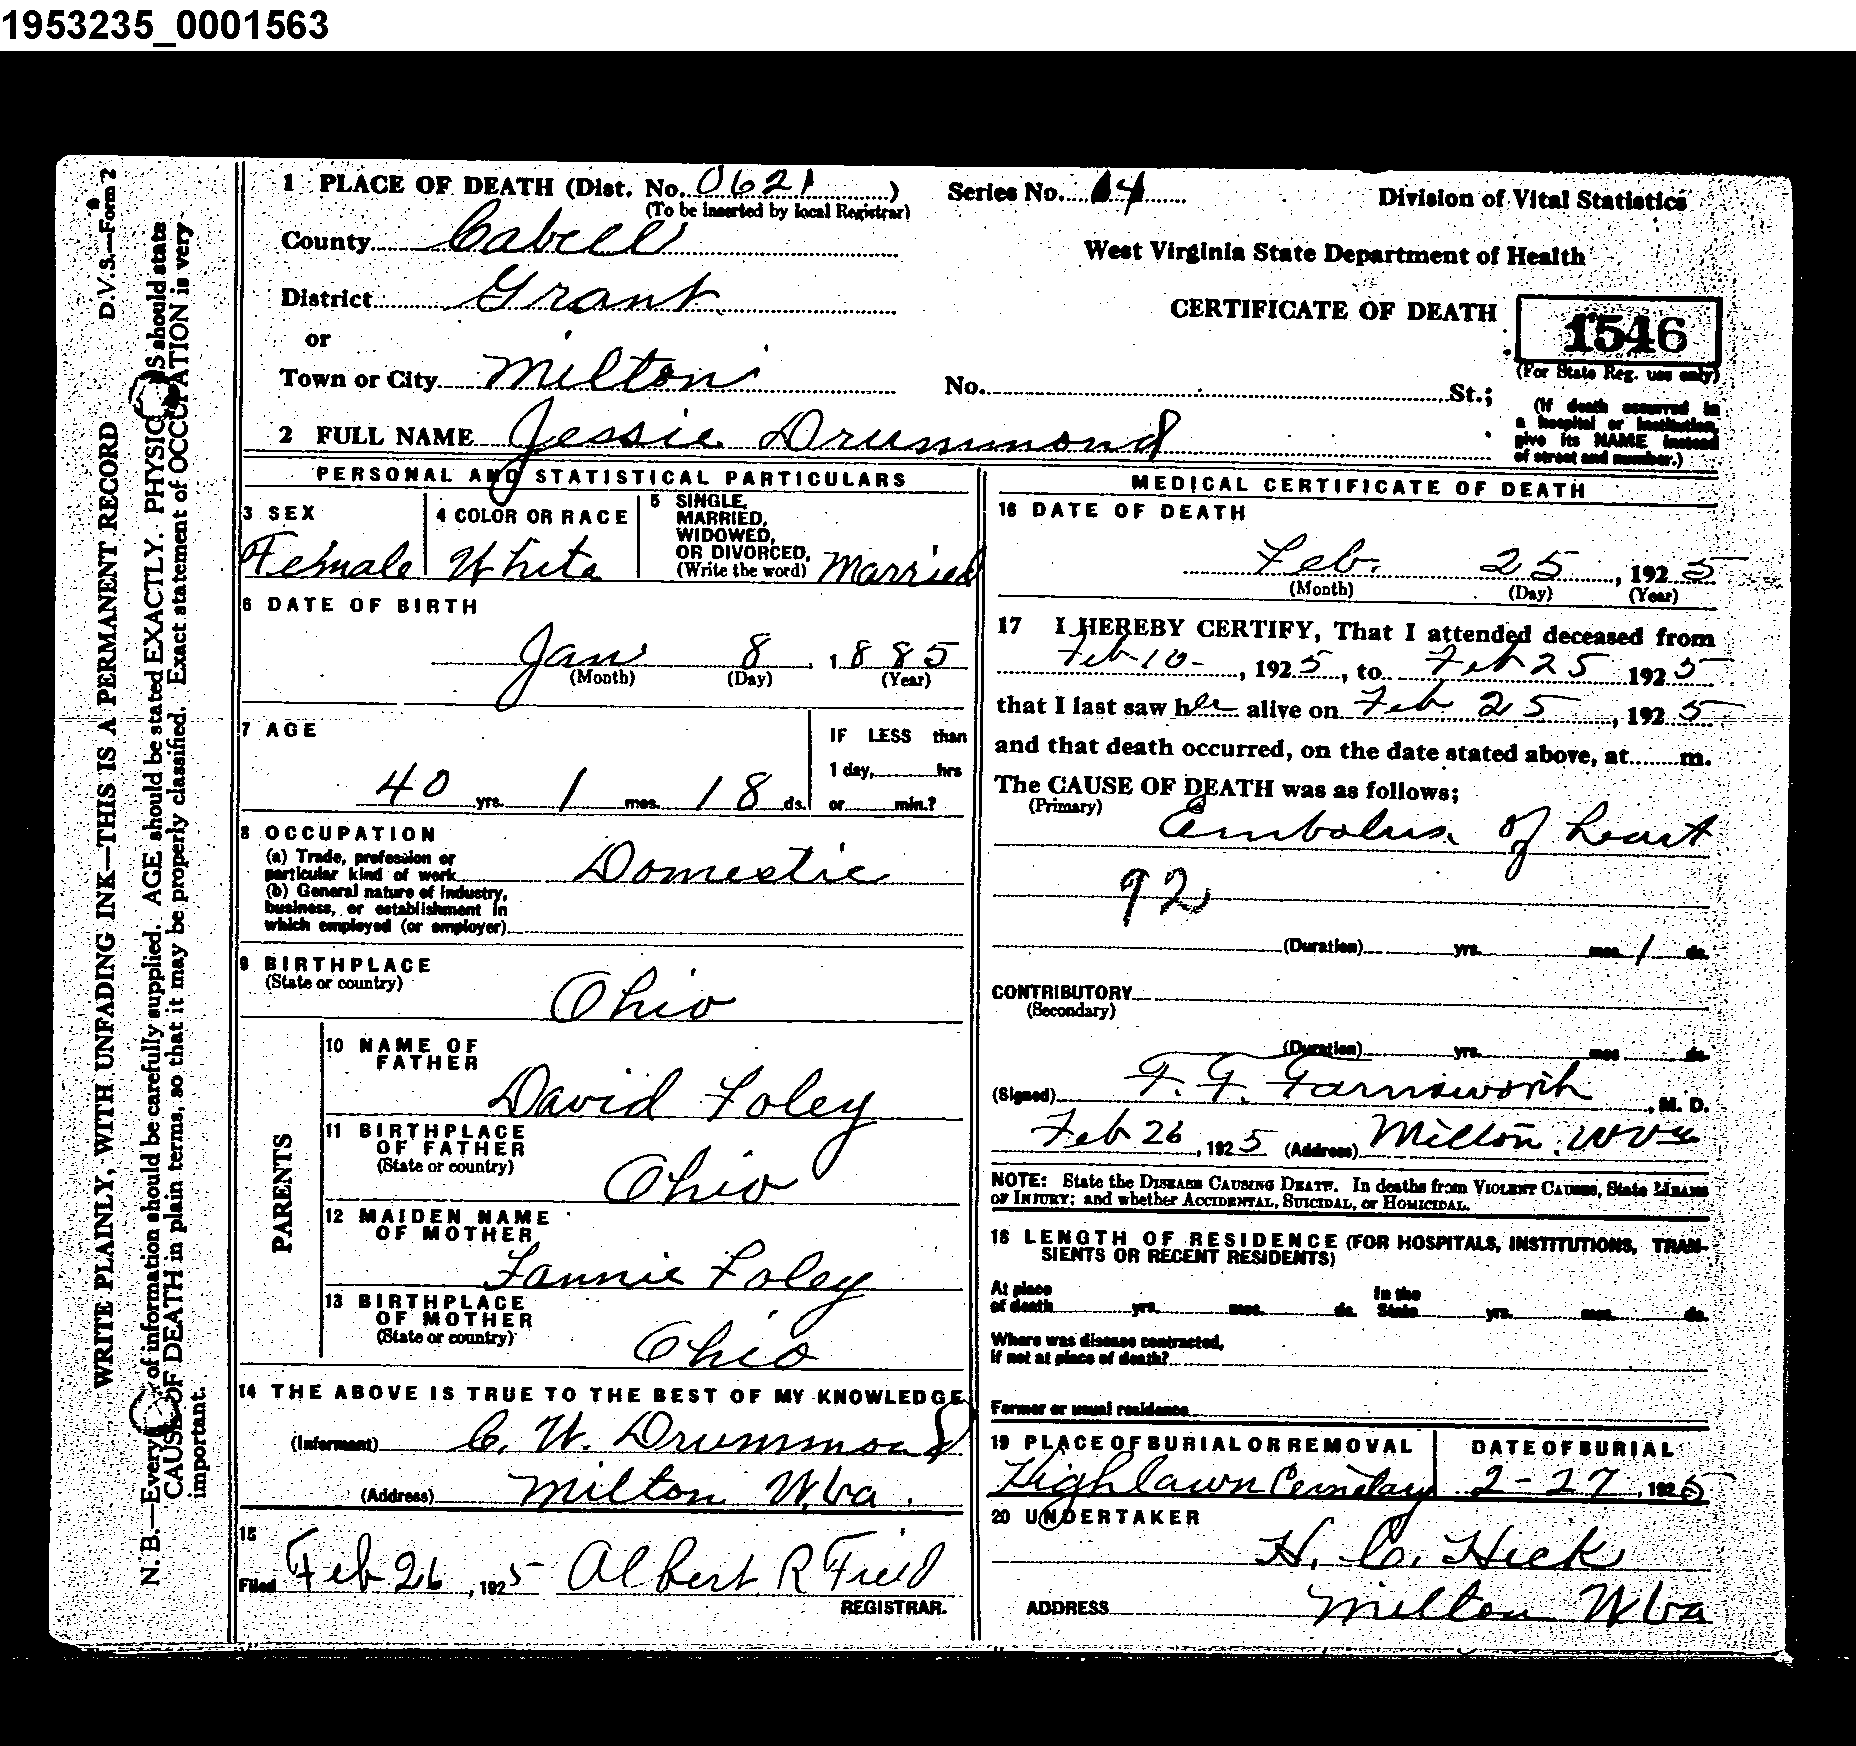 1953235_0001563
D.V.S.—Form 2
WRITE PLAINLY, WITH UNFADING INK—THIS IS A PERMANENT RECORD
N. B.—Every of information should be carefully supplied. AGE should be stated EXACTLY. PHYSIC S should state
CAUSE OF DEATH in plain terms, so that it may be properly classified. Exact statement of OCCUPATION is very
important.
1 PLACE OF DEATH (Dist. No. 0621)
(To be inserted by local Registrar)
County Cabell
District Grant
or
Town or City Milton
Series No. 14
Division of Vital Statistics
West Virginia State Department of Health
CERTIFICATE OF DEATH
1546
(For State Reg. use only)
No. St.;
(If death occurred in
a hospital or institution,
give its NAME instead
of street and number.)
2 FULL NAME Jessie Drummond
PERSONAL AND STATISTICAL PARTICULARS
3 SEX
Female
4 COLOR OR RACE
White
5 SINGLE,
MARRIED,
WIDOWED,
OR DIVORCED,
(Write the word) Married
6 DATE OF BIRTH
Jan 8, 1885
(Month) (Day) (Year)
7 AGE
40 yrs. 1 mos. 18 ds.
IF LESS than
1 day, hrs
or min.?
8 OCCUPATION
(a) Trade, profession or
particular kind of work Domestic
(b) General nature of industry,
business, or establishment in
which employed (or employer)
9 BIRTHPLACE
(State or country)
Ohio
PARENTS
10 NAME OF
FATHER
David Foley
11 BIRTHPLACE
OF FATHER
(State or country)
Ohio
12 MAIDEN NAME
OF MOTHER
Fannie Foley
13 BIRTHPLACE
OF MOTHER
(State or country)
Ohio
14 THE ABOVE IS TRUE TO THE BEST OF MY KNOWLEDGE
(Informant) C. W. Drummond
(Address) Milton W.Va.
15
Filed Feb 26, 1925 Albert R Field
REGISTRAR.
MEDICAL CERTIFICATE OF DEATH
16 DATE OF DEATH
Feb. 25, 1925
(Month) (Day) (Year)
17 I HEREBY CERTIFY, That I attended deceased from
Feb-10-, 1925, to Feb 25 1925
that I last saw her alive on Feb 25, 1925
and that death occurred, on the date stated above, at m.
The CAUSE OF DEATH was as follows;
(Primary)
Embolus of heart
92
(Duration) yrs. mos. 1 ds.
CONTRIBUTORY
(Secondary)
(Duration) yrs. mos ds.
(Signed) F. F. Farnsworth, M. D.
Feb 26, 1925 (Address) Milton, WVa
NOTE: State the DISEASE CAUSING DEATH. In deaths from VIOLENT CAUSES, State MEANS
OF INJURY; and whether ACCIDENTAL, SUICIDAL, or HOMICIDAL.
18 LENGTH OF RESIDENCE (FOR HOSPITALS, INSTITUTIONS, TRAN-
SIENTS OR RECENT RESIDENTS)
At place
of death yrs. mos. ds.
In the
State yrs. mos. ds.
Where was disease contracted,
if not at place of death?
Former or usual residence
19 PLACE OF BURIAL OR REMOVAL
Highlawn Cemetary
DATE OF BURIAL
2-27, 1925
20 UNDERTAKER
H. C. Hick
ADDRESS Milton W Va